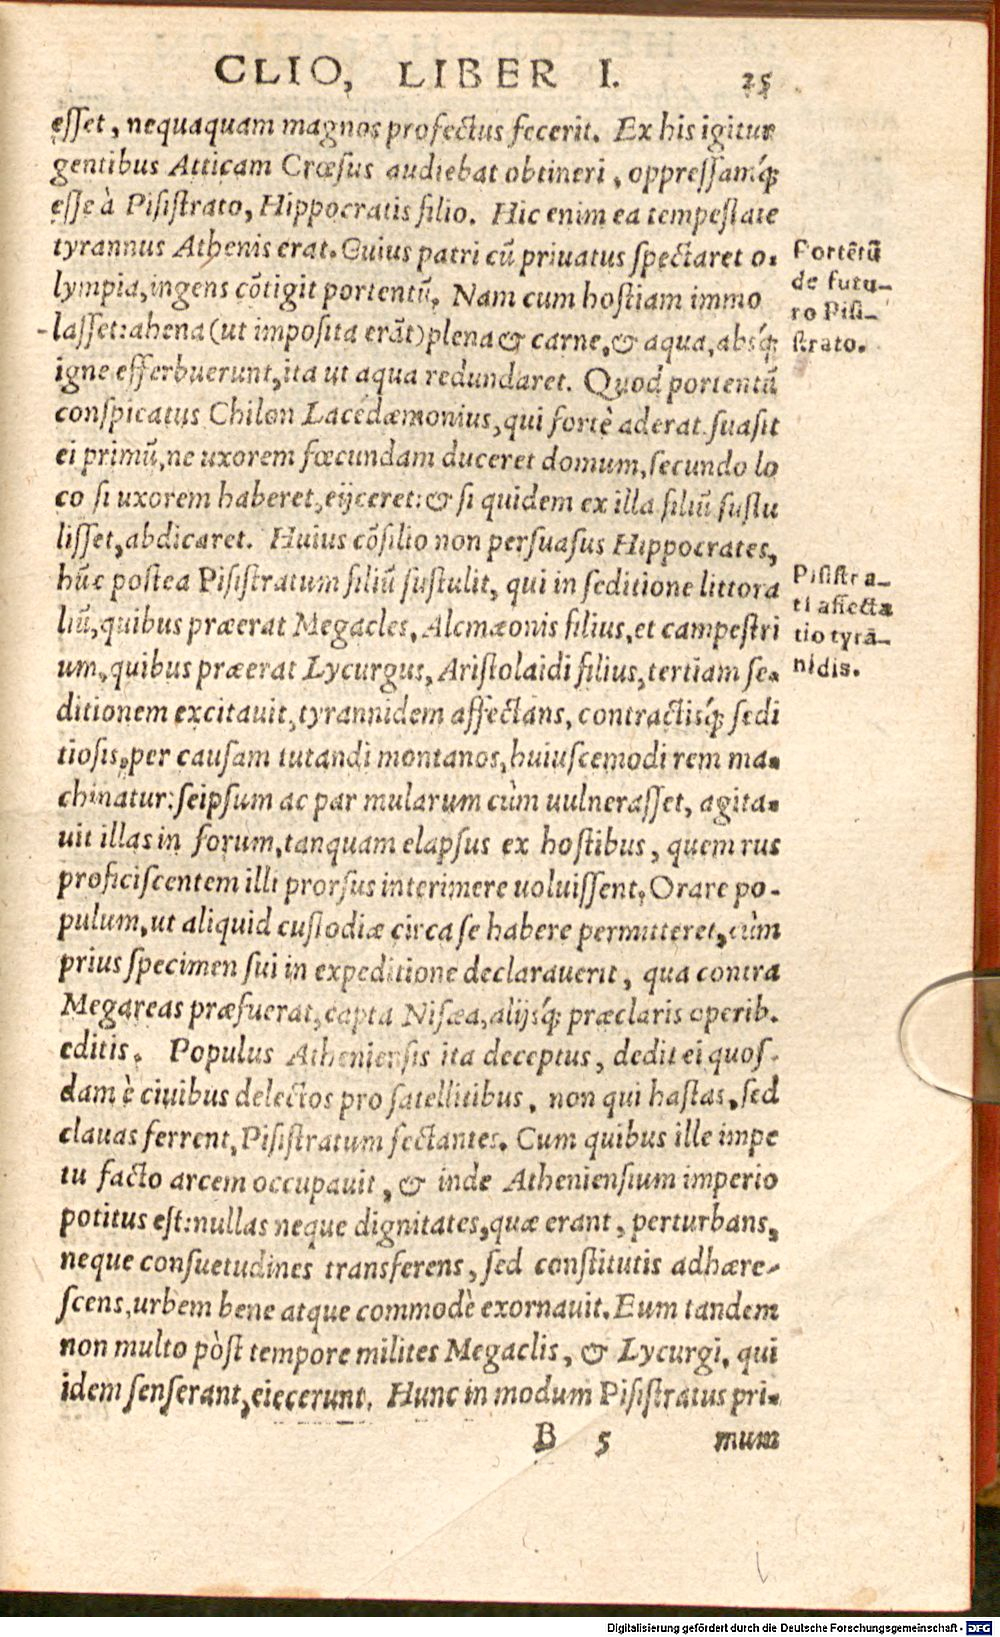 CLIO, LIBER I. 25
esset, nequaquam magnos profectus fecerit. Ex his igitur
gentibus Atticam Crœsus audiebat obtineri, oppressamq́;
esse à Pisistrato, Hippocratis filio. Hic enim ea tempestate
tyrannus Athenis erat. Cuius patri cũ priuatus spectaret o-
lympia, ingens cõtigit portentũ. Nam cum hostiam immo
lasset: ahena (ut imposita erãt) plena & carne, & aqua, absq́;
igne efferbuerunt, ita ut aqua redundaret. Quod portentũ
conspicatus Chilon Lacedæmonius, qui fortè aderat. suasit
ei primũ, ne uxorem fœcundam duceret domum, secundo lo
co si uxorem haberet, eijceret: & si quidem ex illa filiũ sustu
lisset, abdicaret. Huius cõsilio non persuasus Hippocrates,
hũc postea Pisistratum filiũ sustulit, qui in seditione littora
liũ, quibus præerat Megacles, Alcmæonis filius, et campestri
um, quibus præerat Lycurgus, Aristolaidi filius, tertiam se-
ditionem excitauit, tyrannidem affectans, contractisq́; sedi
tiosis, per causam tutandi montanos, huiuscemodi rem ma-
chinatur: seipsum ac par mularum cùm uulnerasset, agita-
uit illas in forum, tanquam elapsus ex hostibus, quem rus
proficiscentem illi prorsus interimere uoluissent. Orare po-
pulum, ut aliquid custodiæ circa se habere permitteret, cùm
prius specimen sui in expeditione declarauerit, qua contra
Megareas præfuerat, capta Nisæa, alijsq́; præclaris operib.
editis. Populus Atheniensis ita deceptus, dedit ei quos-
dam è ciuibus delectos pro satellitibus, non qui hastas, sed
clauas ferrent, Pisistratum sectantes. Cum quibus ille impe
tu facto arcem occupauit, & inde Atheniensium imperio
potitus est: nullas neque dignitates, quæ erant, perturbans,
neque consuetudines transferens, sed constitutis adhære-
scens, urbem bene atque commodè exornauit. Eum tandem
non multo pòst tempore milites Megaclis, & Lycurgi, qui
idem senserant, eiecerunt. Hunc in modum Pisistratus pri-
B 5 mum
Portẽtũ
de futu-
ro Pisi-
strato.
Pisistra-
ti affecta
tio tyrã-
nidis.
Digitalisierung gefördert durch die Deutsche Forschungsgemeinschaft - DFG